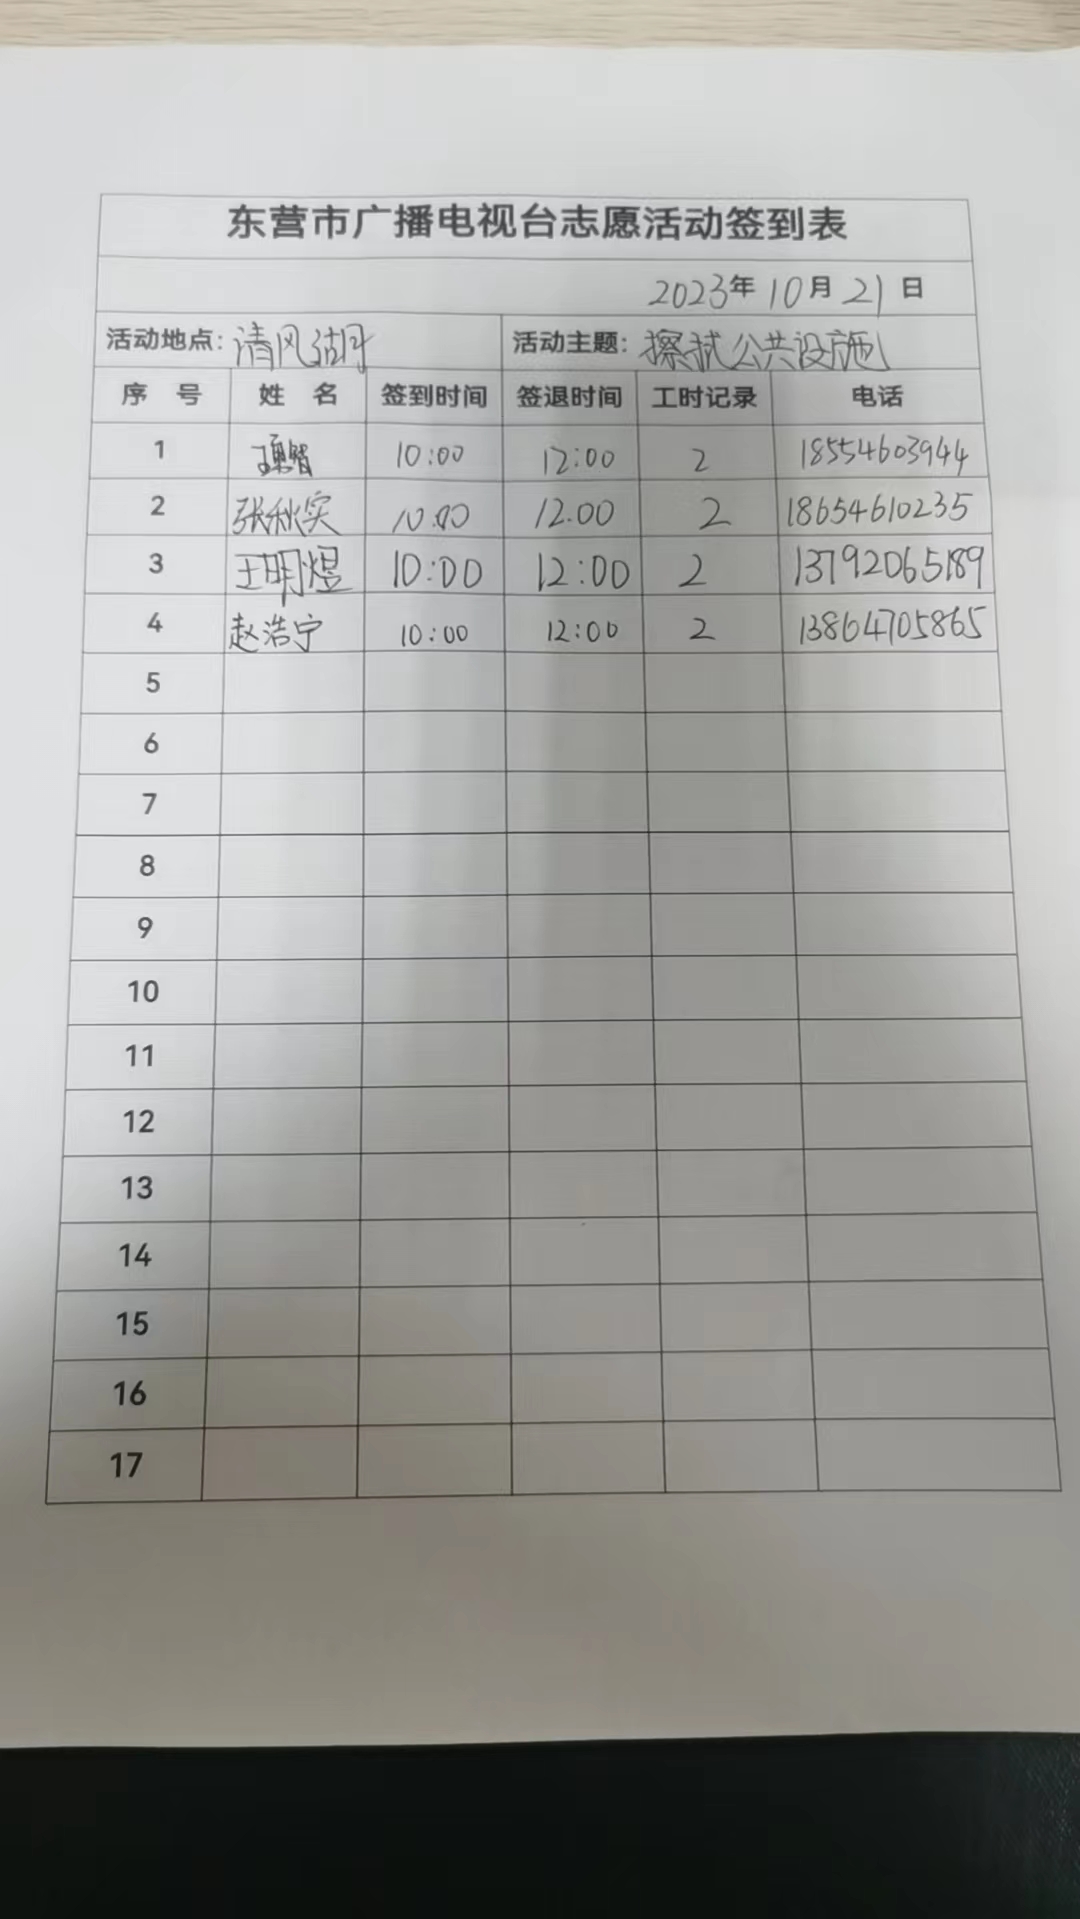 东营市广播电视台志愿活动签到表
2023年10月21日
活动地点：清风湖 活动主题：擦拭公共设施
序 号 姓 名 签到时间 签退时间 工时记录 电话
1 10:00 12:00 2 18554603944
2 张秋实 10:00 12:00 2 18654610235
3 王明煜 10:00 12:00 2 13792065189
4 赵浩宁 10:00 12:00 2 13864705865
5
6
7
8
9
10
11
12
13
14
15
16
17